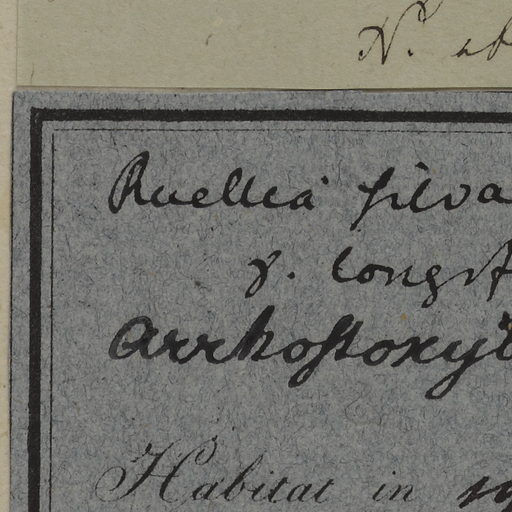 Nr.
Ruellia silva
γ. longif
Arrhostoxy
Habitat in